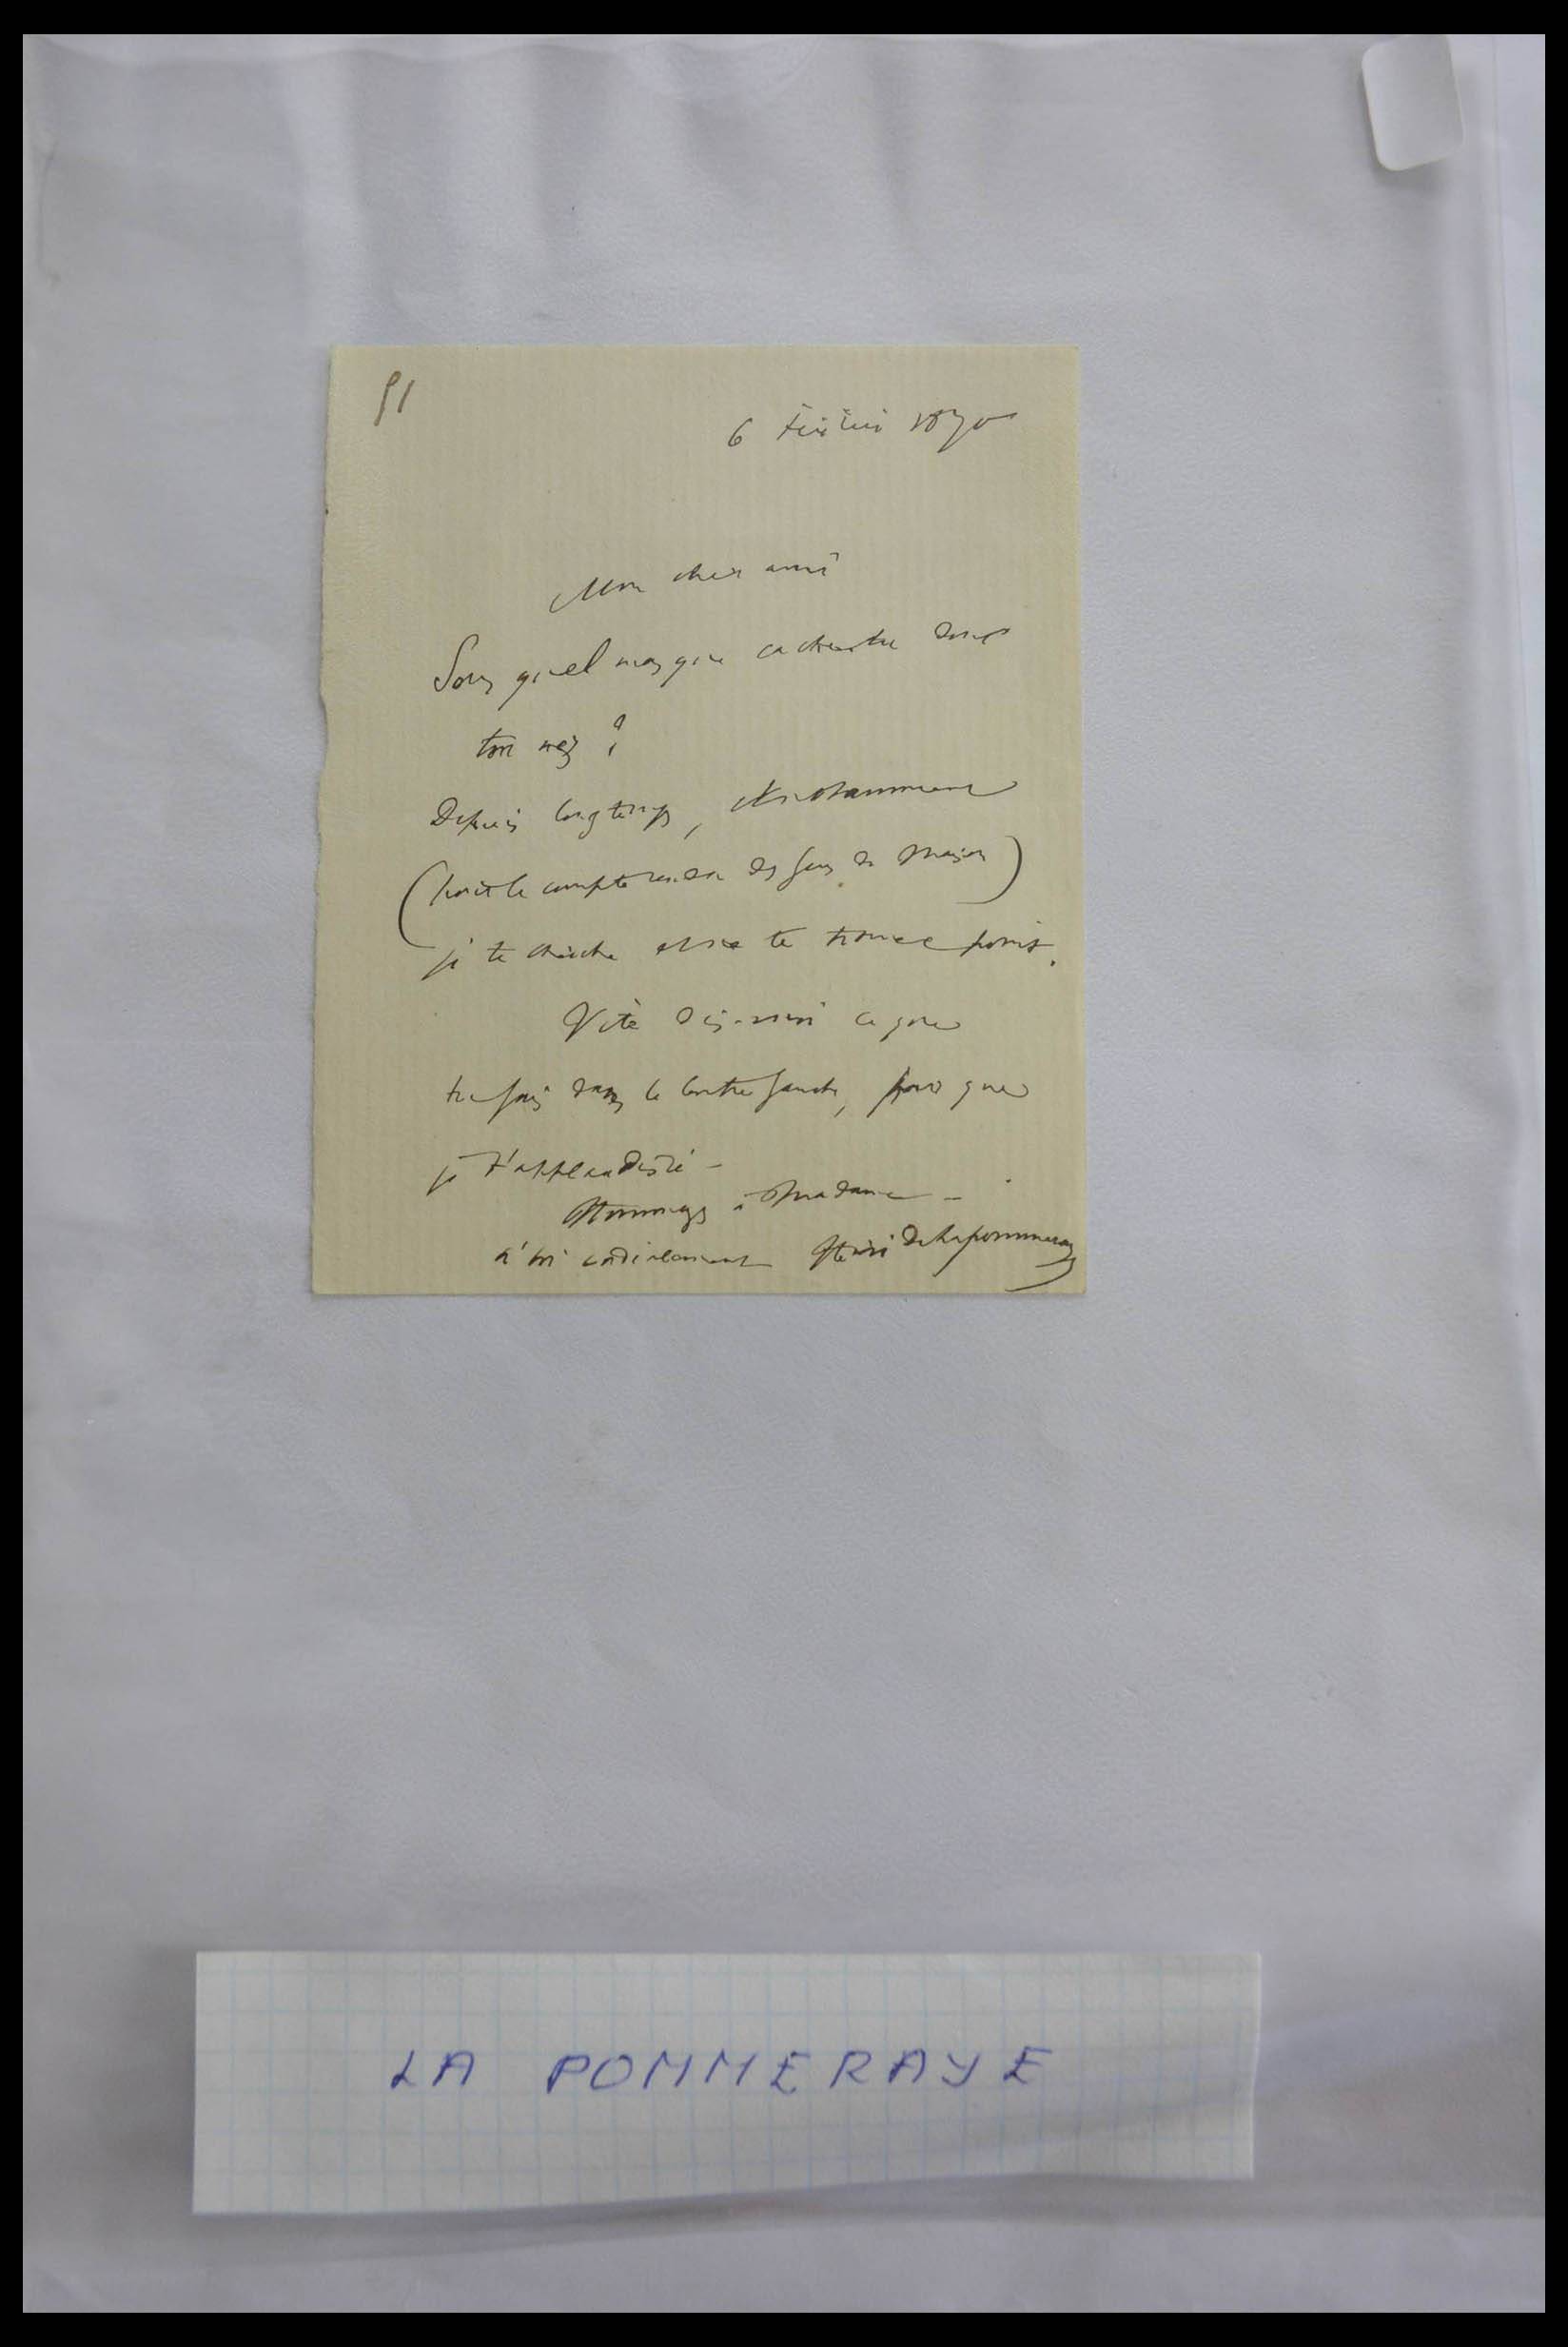 91
6 février 1870
Mon cher ami
Sous quel masque caches-tu donc
ton nez ?
Depuis longtemps, et notamment
( le compte rendu des de maison)
je te cherche et ne te trouve point.
Vite dis-moi ce que
tu fais dans le Centre gauche, pour que
je t'applaudisse -
Hommages à Madame -
à toi cordialement Henri de Lapommeraye
LA POMMERAYE